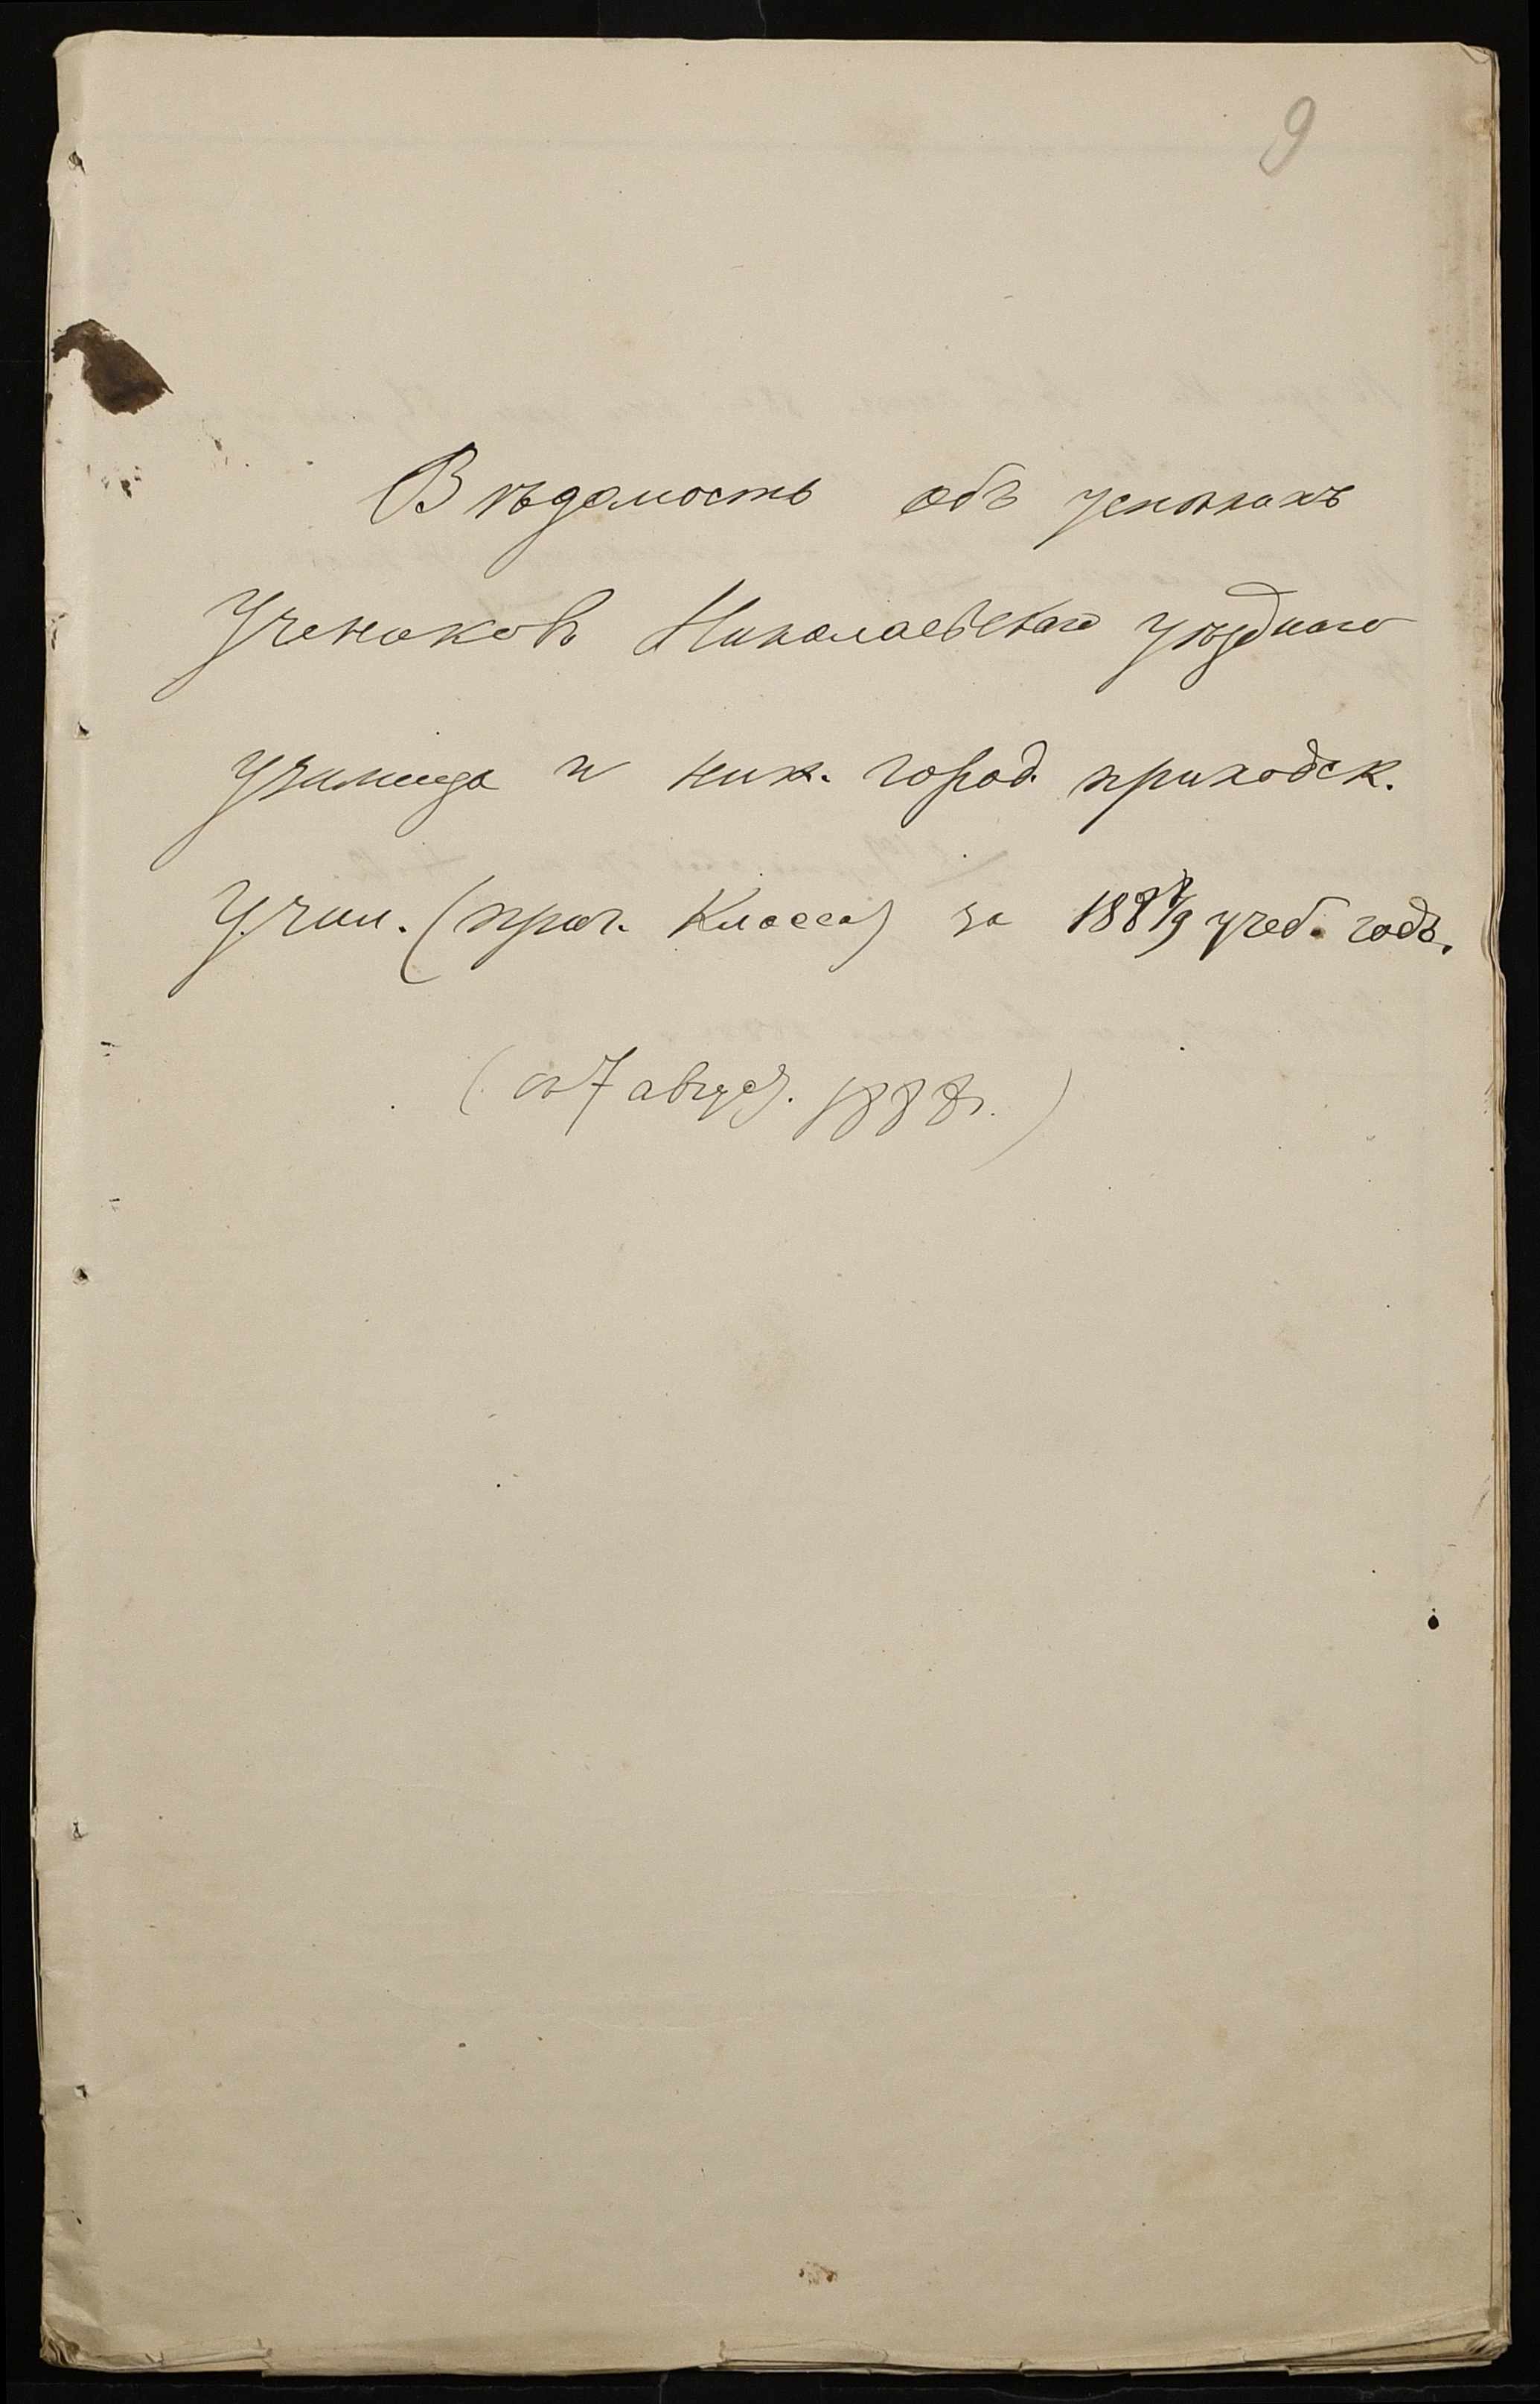 9
Вѣдомость объ успѣхахъ
Учениковъ Николаевскаго уѣзднаго
училища и ник. город. приходск.
Учил. (приг. Класса) за 188 8/9 учеб. годъ.
(съ 7 август. 1888 г.)